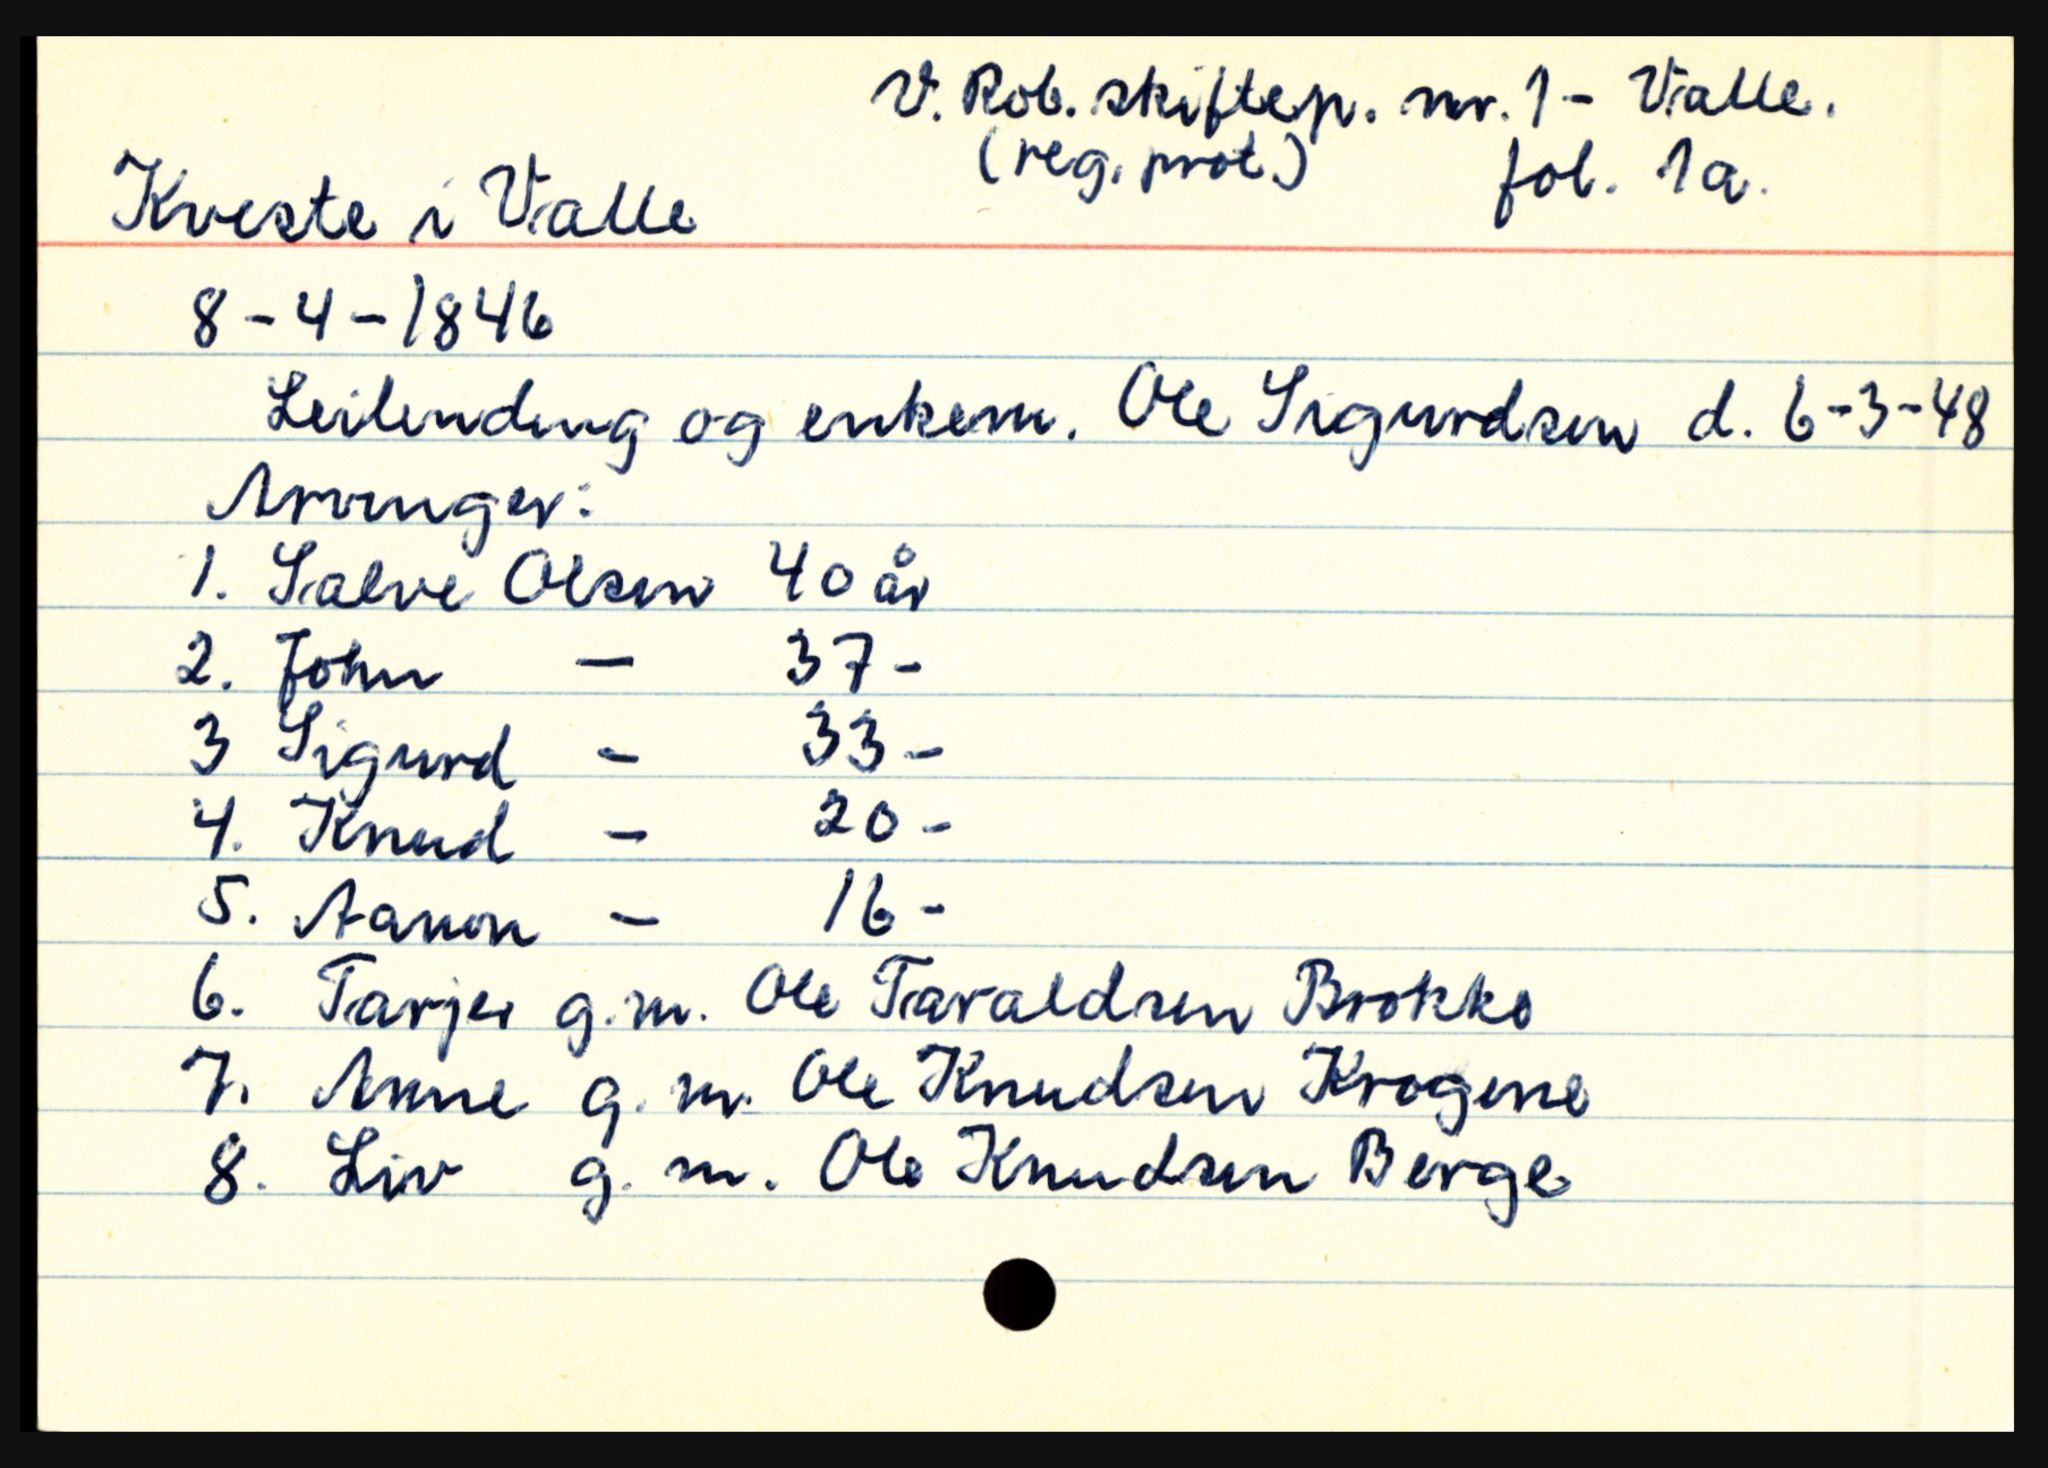 V. Rob. skiftep. nr. 1 - Valle.
(reg. prot.) fol. 1a.
Kveste i Valle
8-4-1846
Leilending og enkem. Ole Sigurdsen d. 6-3-48
Arvinger:
1. Salve Olsen 40 år
2. John - 37 -
3 Sigurd - 33 -
4. Knud - 20 -
5. Aanon - 16 -
6. Tarjei g.m. Ole Taraldsen Brokke
7. Anne g.m. Ole Knudsen Krogene
8. Liv g.m. Ole Knudsen Berge